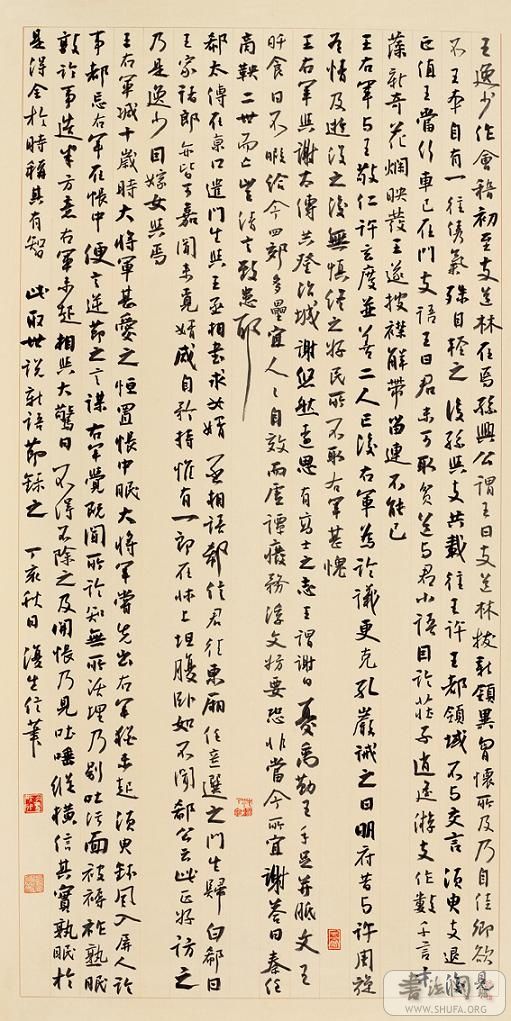 王逸少作會稽初至支道林在焉孫興公謂王曰支道林拔新領異胸懷所及乃自佳卿欲見
不王本自有一往雋氣殊自輕之後孫與支共載往王許王都領域不與交言須臾支退後
正值王當行車已在門支語王曰君未可去貧道與君小語因論莊子逍遙遊支作數千言才
藻新奇花爛映發王遂披襟解帶留連不能已
王右軍與王敬仁許玄度並善二人亡後右軍為論議更克孔巖誡之曰明府昔與許周旋
有情及逝沒之後無慎終之好民所不取右軍甚愧
王右軍與謝太傅共登冶城謝悠然遠思有高士之志王謂謝曰夏禹勤王手足胼胝文王
旰食日不暇給今四郊多壘宜人人自效而虛談廢務浮文妨要恐非當今所宜謝答曰秦任
商鞅二世而亡豈清言致患耶
郗太傅在京口遣門生與王丞相書求女婿丞相語郗信君往東廂任意選之門生歸白郗曰
王家諸郎亦皆可嘉聞來覓婿咸自矜持惟有一郎在床上坦腹卧如不聞郗公云此正好訪之
乃是逸少因嫁女與焉
王右軍減十歲時大將軍甚愛之恒置帳中眠大將軍嘗先出右軍猶未起須臾錢鳳入屏人論
事都忘右軍在帳中便言逆節之謀右軍覺既聞所論知無所活理乃剔吐污面被褥詐熟眠
敦論事造半方意右軍未起相與大驚曰不得不除之及開帳乃見吐唾縱橫信其實熟眠於
是得全於時稱其有智 此取世說新語節錄之 丁亥秋日 生信筆
書法網
WWW.SHUFA.ORG